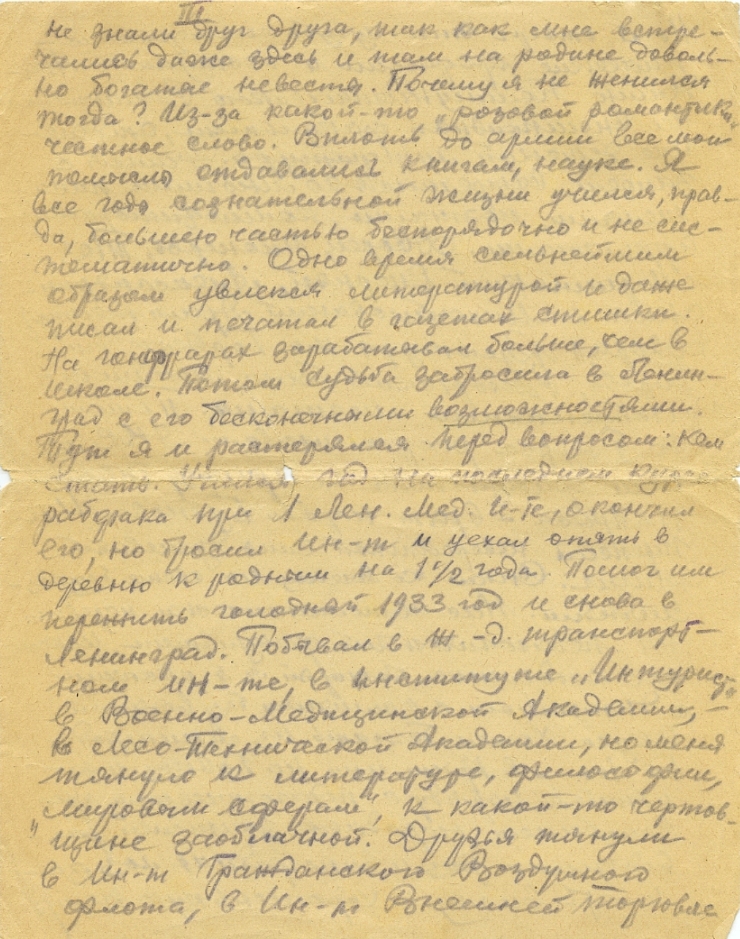 III
не знали друг друга, так как мне встре-
чались даже здесь и там на родине доволь-
но богатые невесты. Почему я не женился
тогда? Из-за какой-то „розовой романтики"
честное слово. Вплоть до армии все мои
помыслы отдавались книгам, науке. Я
все годы сознательной жизни учился, прав-
да, большею частью беспорядочно и не сис-
тематично. Одно время сильнейшим
образом увлекся литературой и даже
писал и печатал в газетах стишки.
На гонорарах зарабатывал больше, чем в
школе. Потом судьба забросила в Ленин-
град с его бесконечными возможностями.
Тут я и растерялся перед вопросом: кем
стать. Учился год на последнем курсе
рабфака при 1 Лен. Мед. И-те, окончил
его, но бросил Ин-т и уехал опять в
деревню к родным на 1 1/2 года. Помог им
пережить голодный 1933 год и снова в
Ленинград. Побывал в ж-д. транспорт-
ном ин-те, в институте „Интурист"
в Военно-Медицинской Академии,-
в Лесо-Технической Академии, но меня
тянуло к литературе, философии,
„мировым сферам", к какой-то чертов-
щине заоблачной. Друзья тянули
в Ин-т Гражданского Воздушного
флота, в Ин-т Внешней торговли